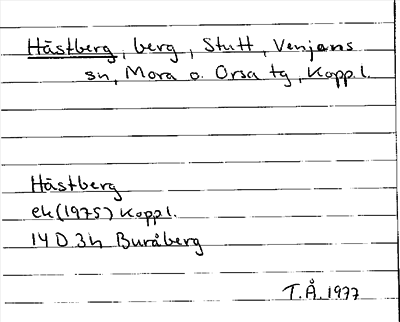 Hästberg, berg, Stutt, Venjans
sn, Mora o. Orsa tg, Kopp.l.
Hästberg
ek (1975) Kopp l.
14 D 3h Buråberg
T.Å. 1977